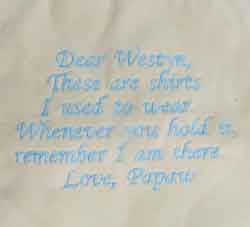 Dear Westyn,
These are shirts
I used to wear.
Whenever you hold it,
remember I am there.
Love, Papaw